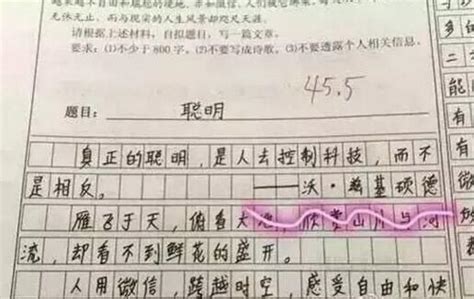 越来越不自由和
无休无止，而与现实的人生风景却咫尺天涯。
请根据上述材料，自拟题目，写一篇文章。
要求：(1)不少于800字。(2)不要写成诗歌。(3)不要透露个人相关信息。
45.5
题目： 聪明
真正的聪明，是人去控制科技，而不
是相反。 ——沃·兹基硕德
雁飞于天，俯看大地，欣赏山川与河
流，却看不到鲜花的盛开。
人用微信，跨越时空，感受自由和快
多
的
二
能
有
有
微